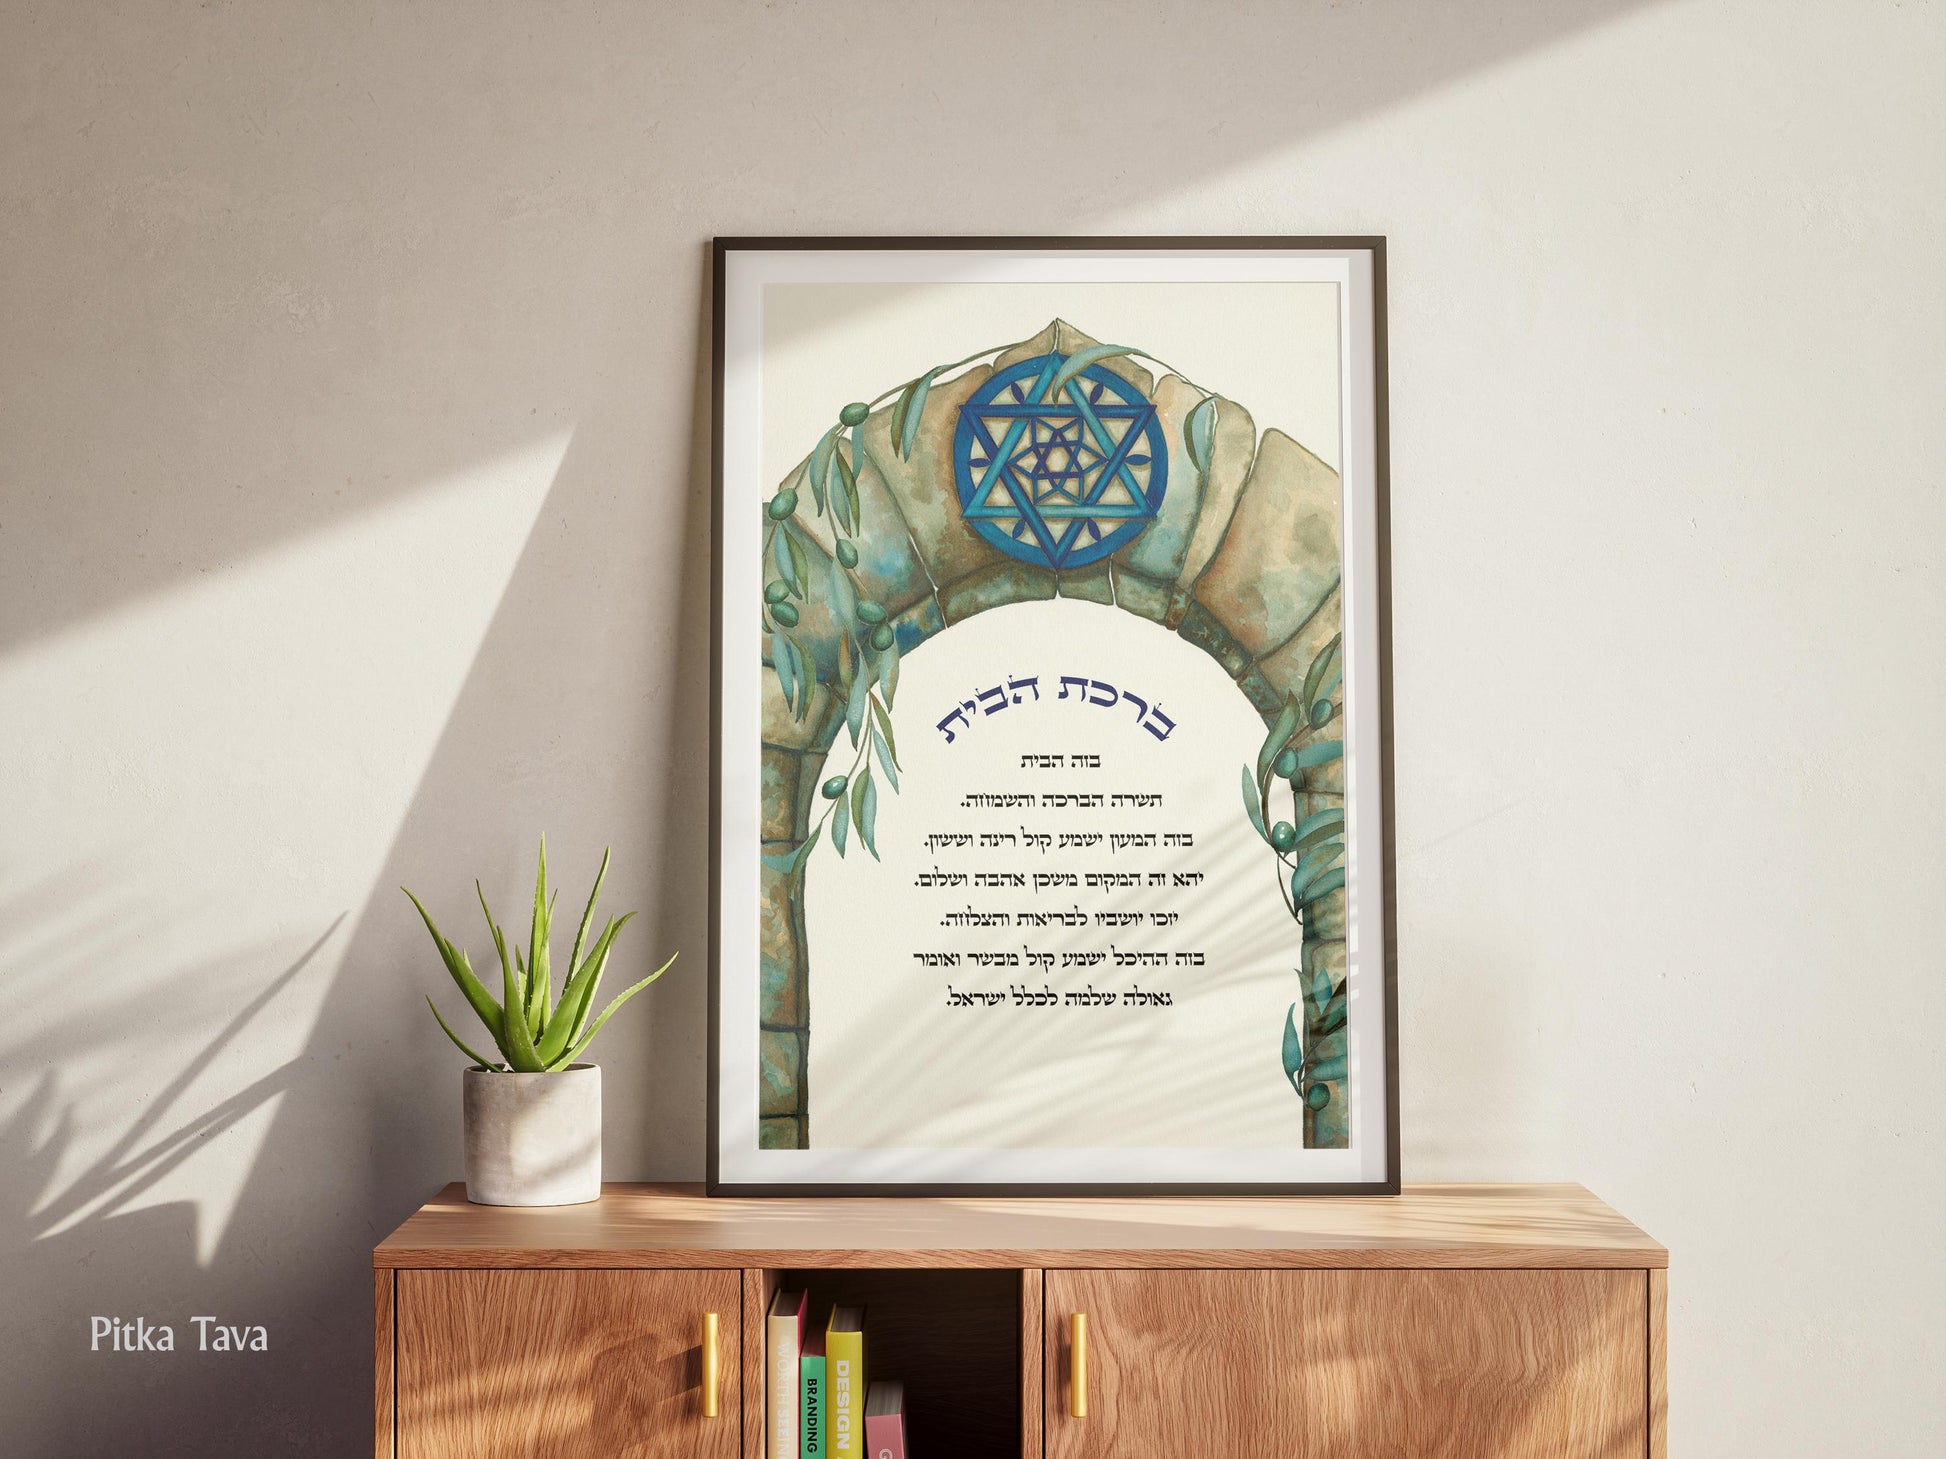 ברכת הבית
בזה הבית
תשרה הברכה והשמחה.
בזה המעון ישמע קול רינה וששון.
יהא זה המקום משכן אהבה ושלום.
יזכו יושביו לבריאות והצלחה.
בזה ההיכל ישמע קול מבשר ואומר
גאולה שלמה לכלל ישראל.
Pitka Tava
WORTH SEEIN
BRANDING
DESIGN